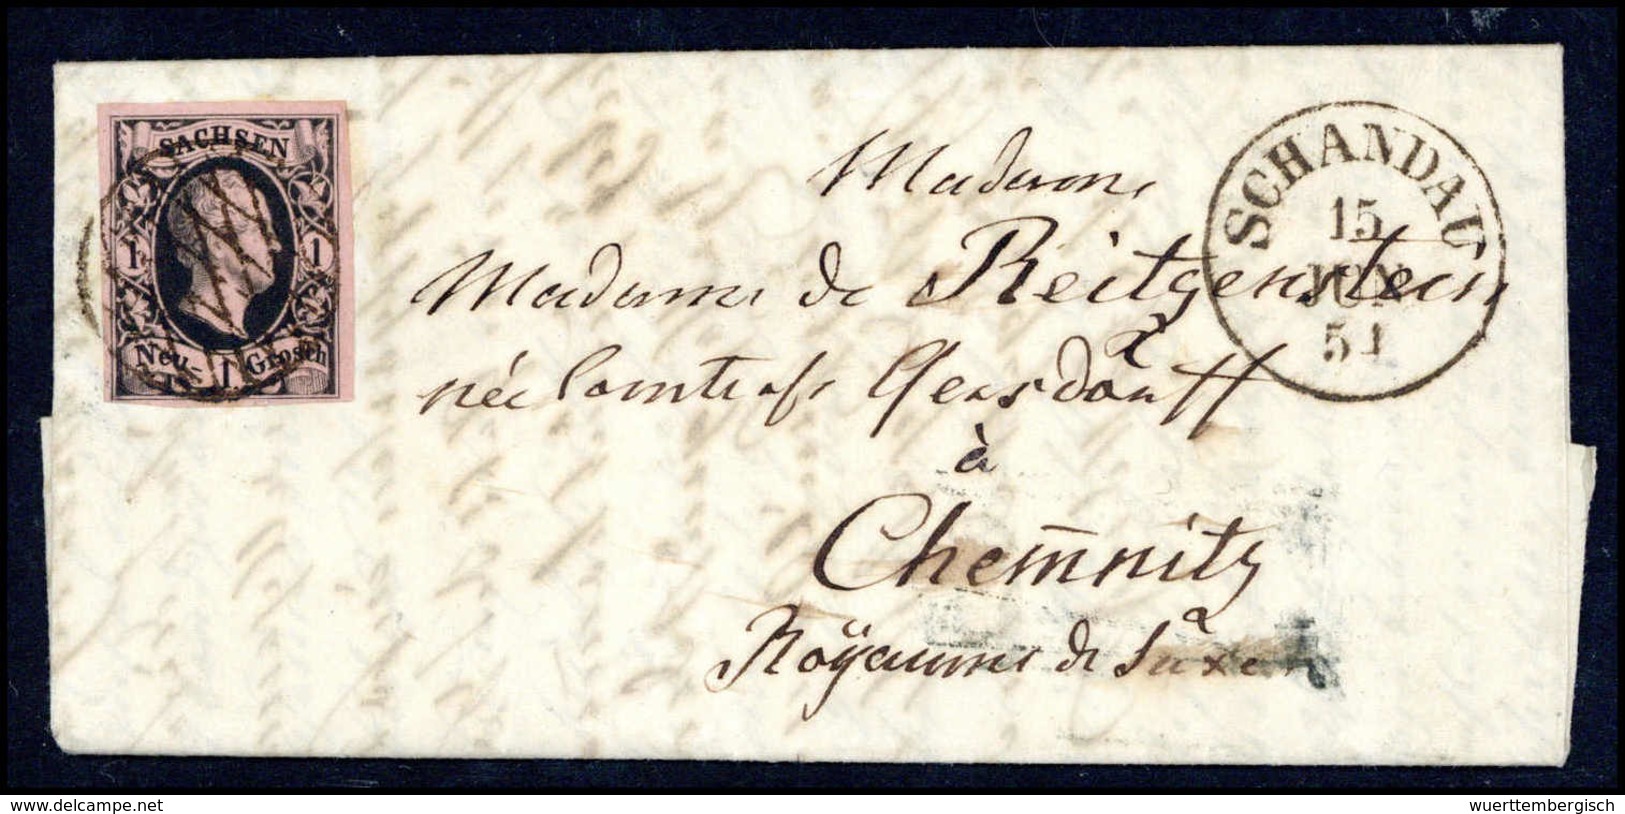 SACHSEN
1 1
Neu- 1 Grosch
SCHANDAU
15
JUN
51
Madame
Madame de Reitzenstein
née Comtesse Gersdorff
à
Chemnitz
Royaume de Saxe
© delcampe.net
wuerttembergisch